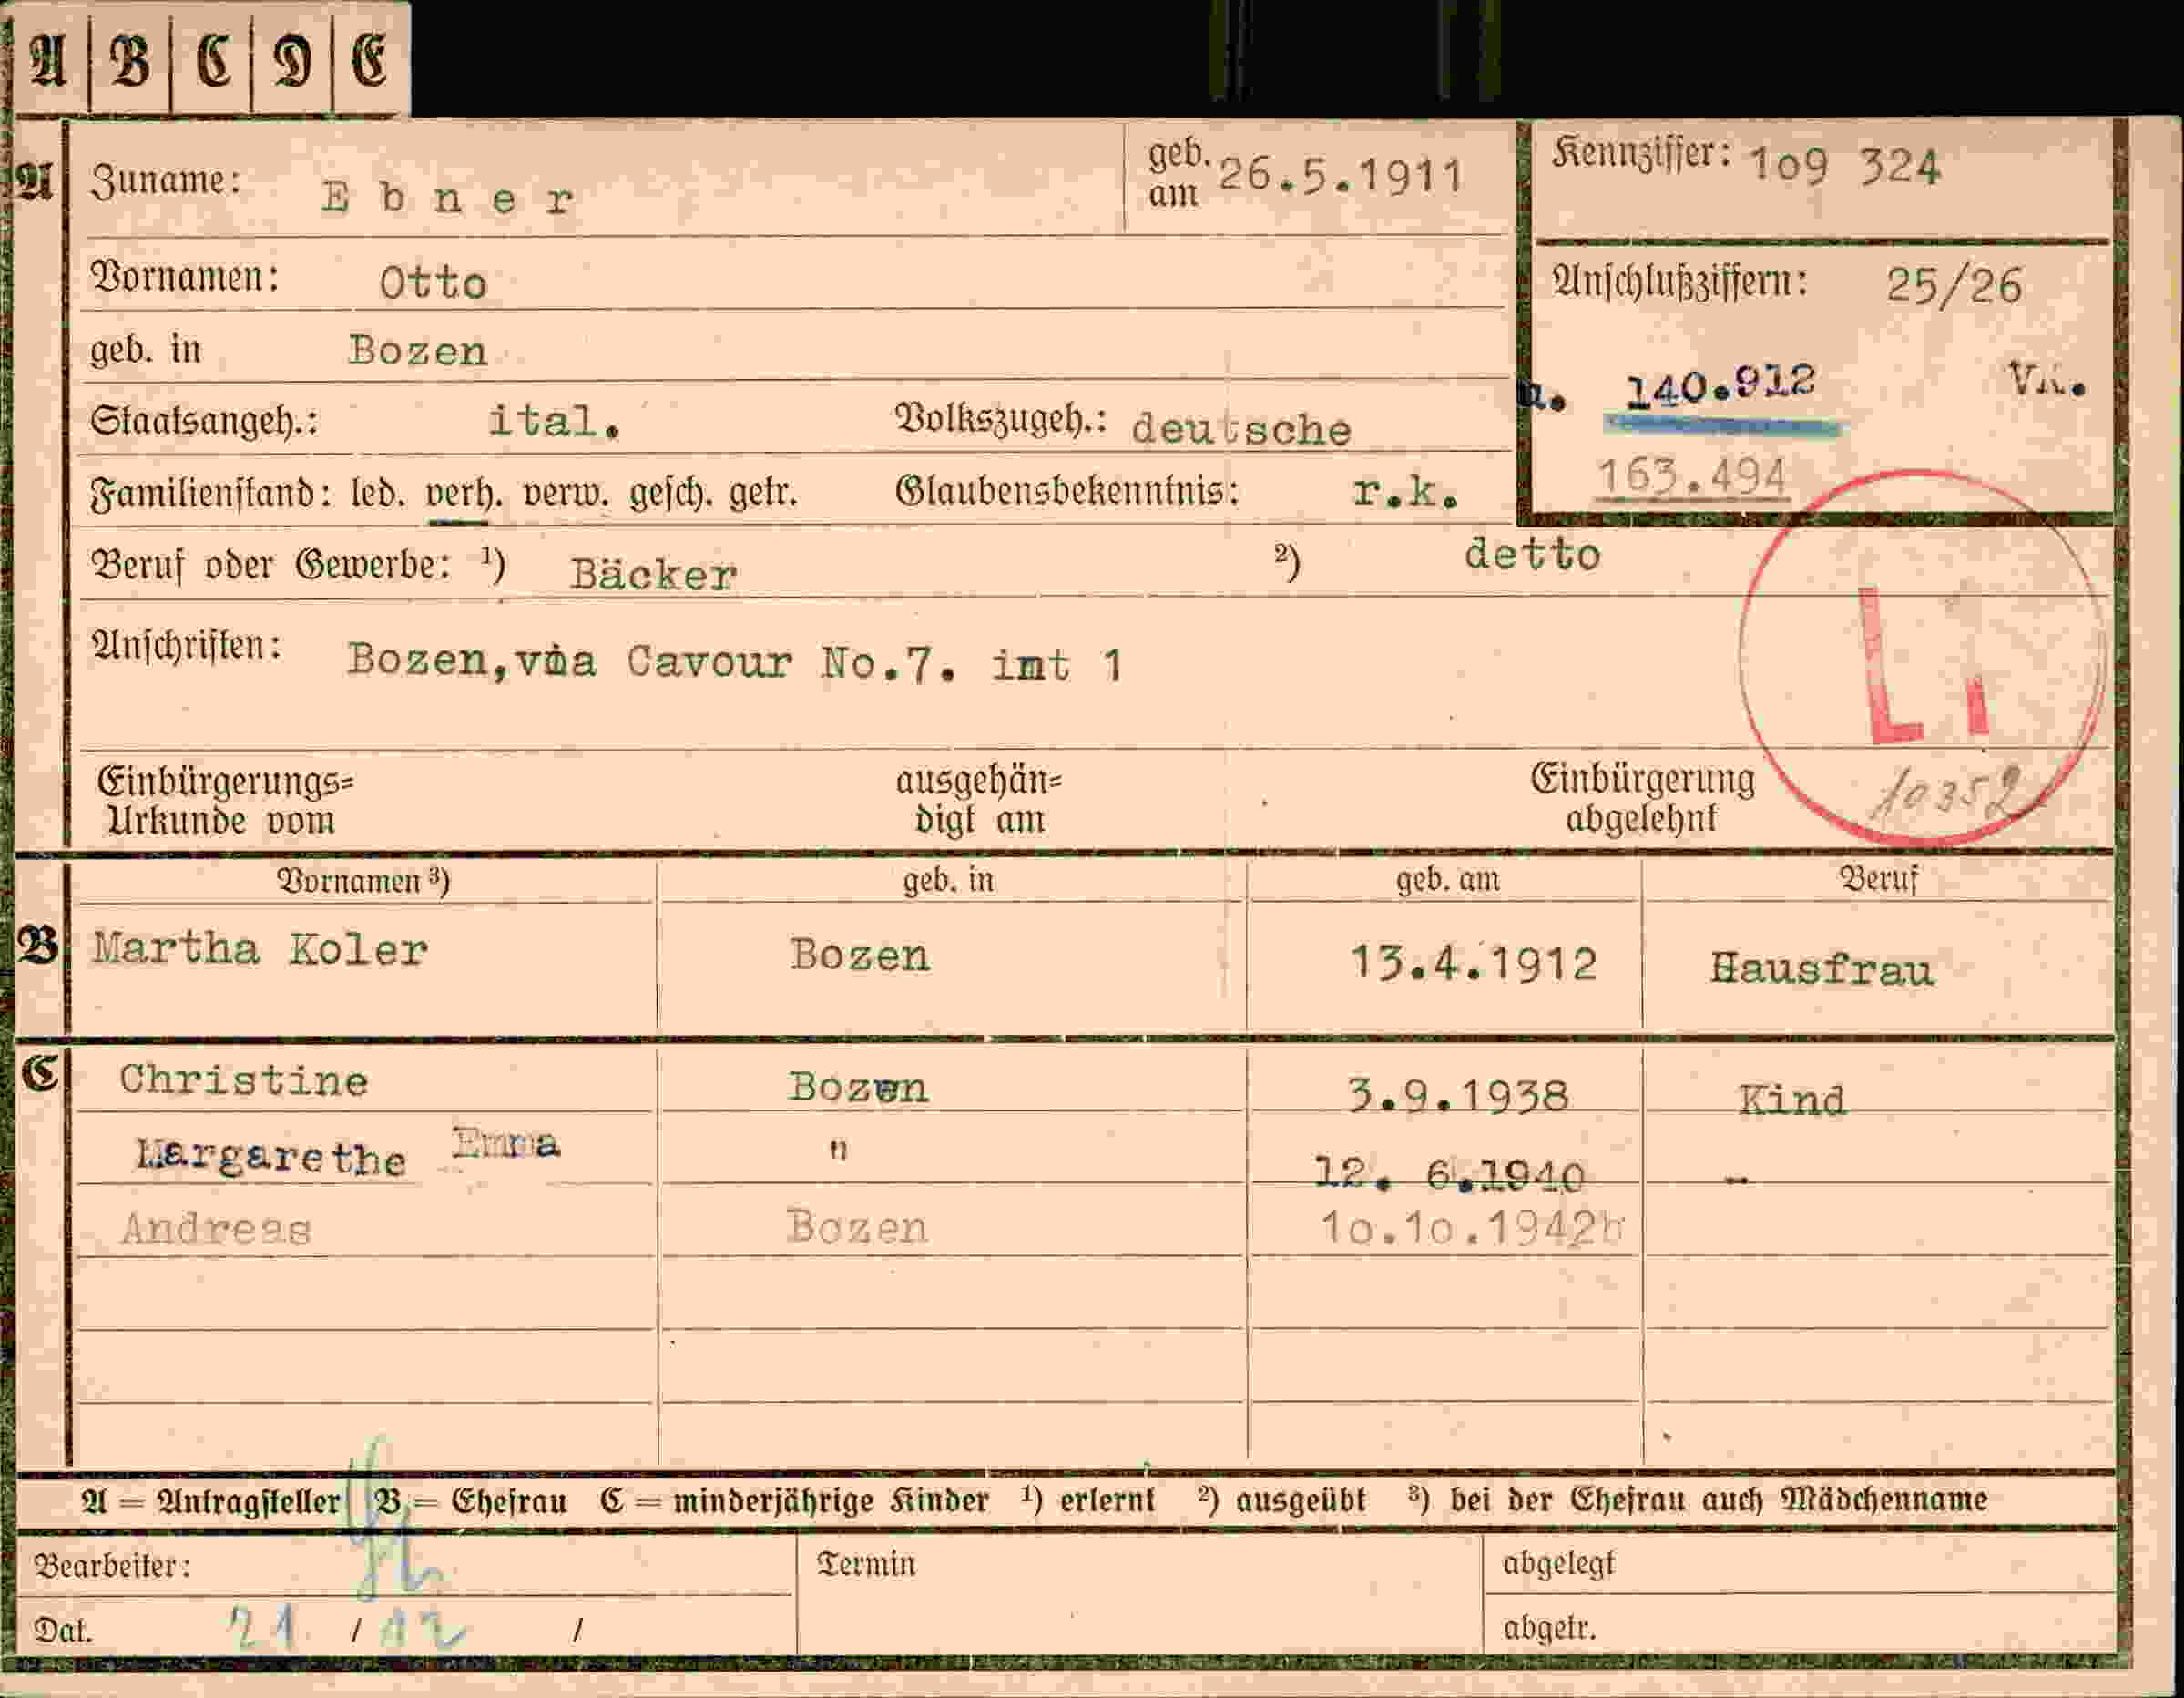 A B C D E
A Zuname: Ebner geb. am 26.5.1911 Kennziffer: 109 324
Vornamen: Otto Anschlußziffern: 25/26
geb. in Bozen
140.912
Staatsangeh.: ital. Volkszugeh.: deutsche
163.494
Familienstand: led. verh. verw. gesch. getr. Glaubensbekenntnis: r.k.
Beruf oder Gewerbe: ¹) Bäcker ²) detto
Anschriften: Bozen, via Cavour No.7. int 1
L i
10352
Einbürgerungs= Urkunde vom ausgehän= digt am Einbürgerung abgelehnt
Vornamen ³) geb. in geb. am Beruf
B Martha Koler Bozen 13.4.1912 Hausfrau
C Christine Bozen 3.9.1938 Kind
Margarethe Emma " 12. 6.1940 --
Andreas Bozen 10.10.1942
A = Antragsteller B = Ehefrau C = minderjährige Kinder ¹) erlernt ²) ausgeübt ³) bei der Ehefrau auch Mädchenname
Bearbeiter: Termin abgelegt
Dat. 21 / 12 / abgetr.